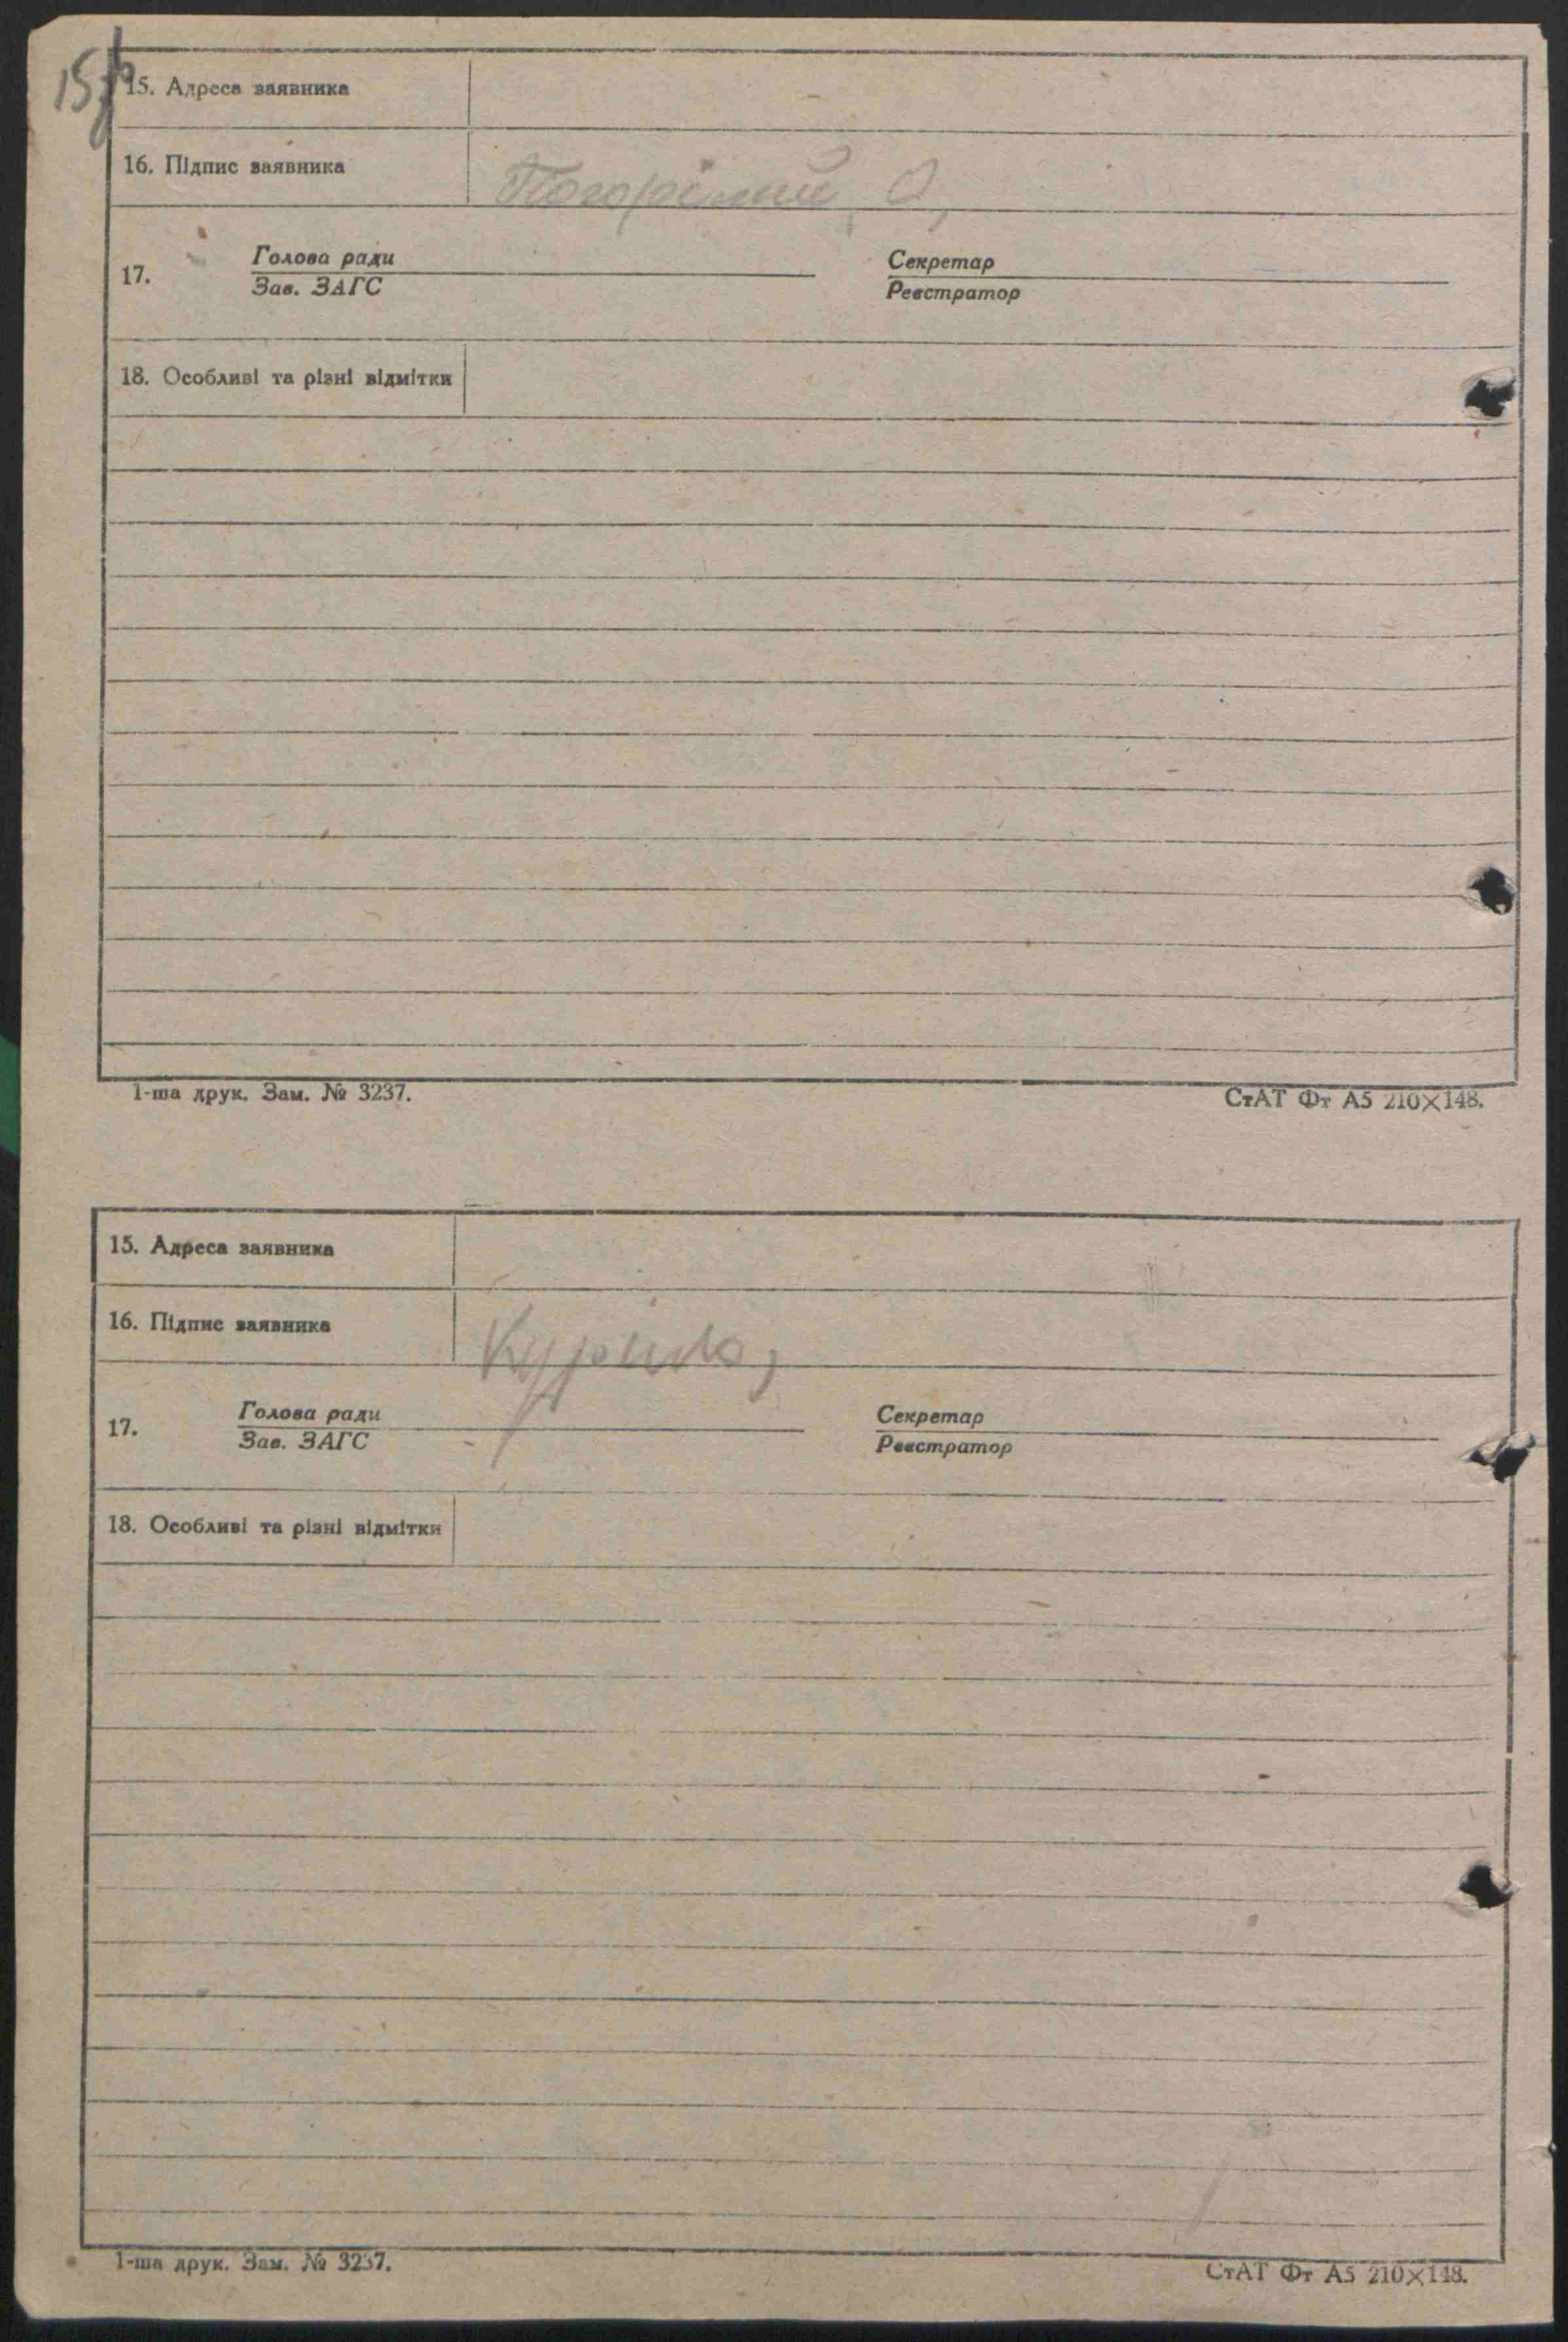 15. Адреса заявника
16. Підпис заявника Погорілий О,
17. Голова ради Секретар
Зав. ЗАГС Реєстратор
18. Особливі та різні відмітки
1-ша друк. Зам. № 3237. СтАТ Фт А5 210×148.
15. Адреса заявника
16. Підпис заявника
17. Голова ради Секретар
Зав. ЗАГС Реєстратор
18. Особливі та різні відмітки
1-ша друк. Зам. № 3237. СтАТ Фт А5 210×148.